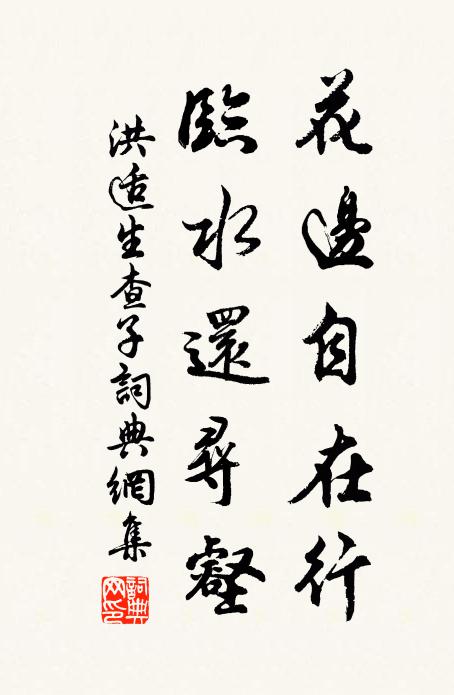 花邊自在行
臨水還尋壑
洪适生查子詞典網集
詞典網印